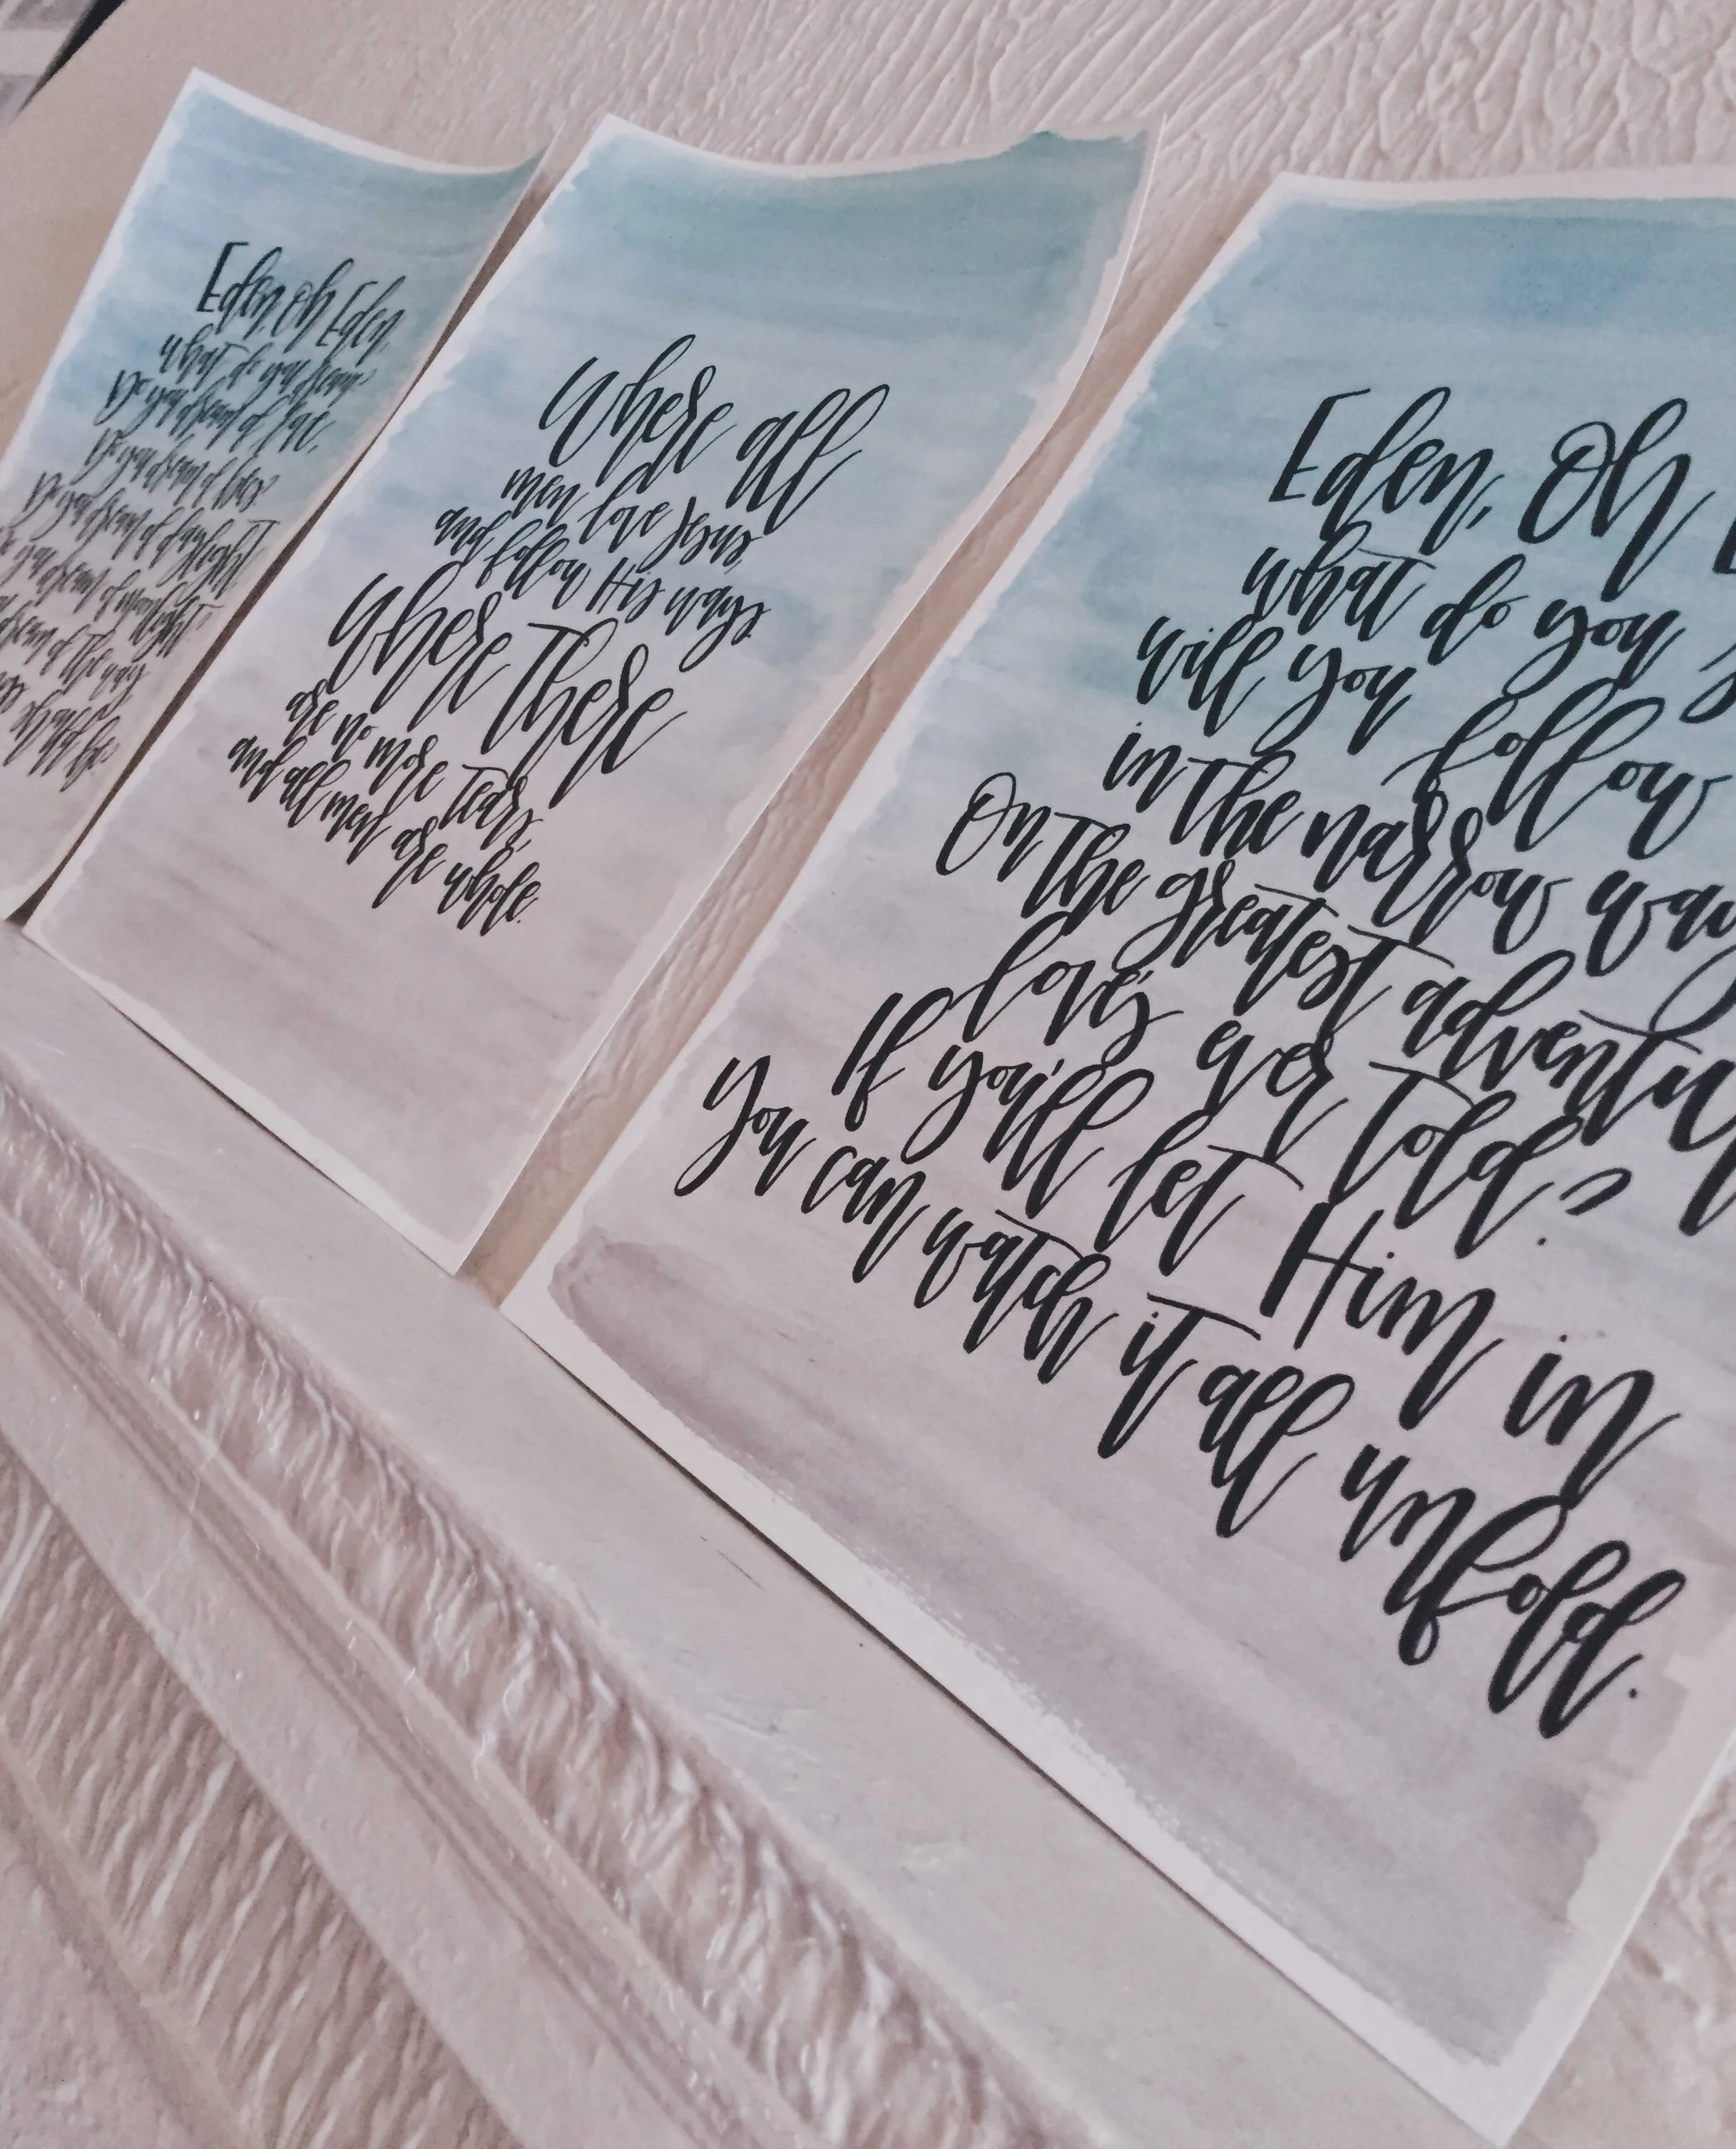 Eden, Oh Eden,
what do you dream?
Do you dream of love,
Do you dream of loss?
Do you dream of daylight
you dream of moonlight
dream of the way
should be?
Where all
men love Jesus,
and follow His ways.
Where There
are no more tears,
and all men are whole.
Eden, Oh
what do you
will you follow
in the narrow way
On the greatest adventu
love's ever told?
If you'll let Him in
You can watch it all unfold.